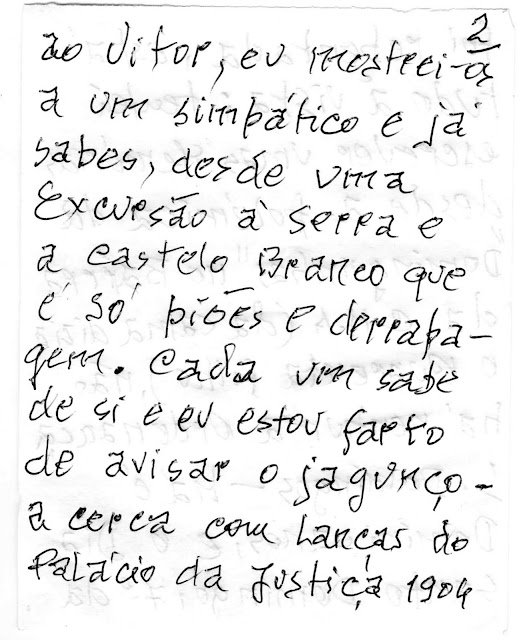 2
ao Vitor, eu mostrei-os
a um simpático e já
sabes, desde uma
Excursão à Serra e
a Castelo Branco que
é só piões e derrapa-
gem. Cada um sabe
de si e eu estou farto
de avisar o jagunço-
a cerca com lanças do
Palácio da Justiça 1904